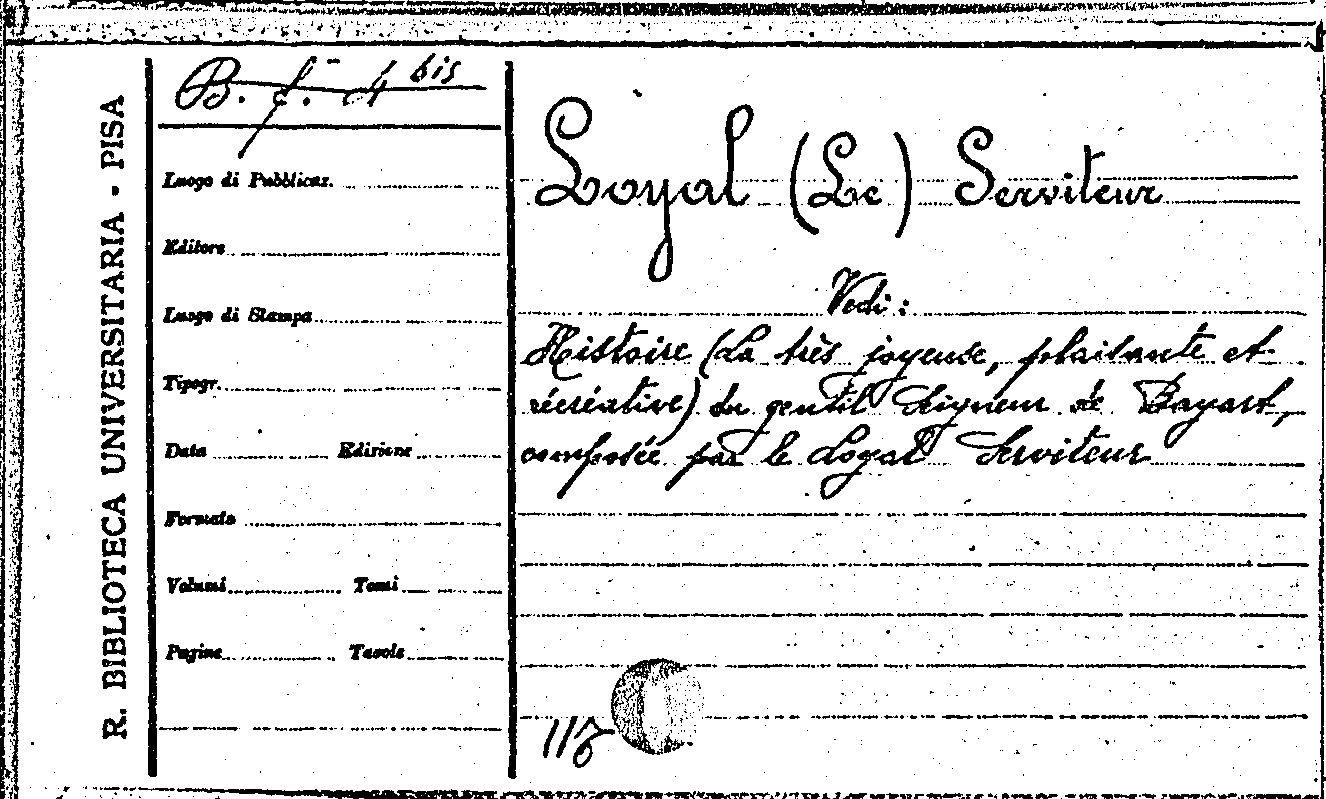 R. BIBLIOTECA UNIVERSITARIA - PISA
B. f. 4 bis
Luogo di Pubblicaz.
Editore
Luogo di Stampa
Tipogr.
Data Edizione
Formato
Volumi Tomi
Pagine Tavole
Loyal (Le) Serviteur
Vedi:
Histoire (La très joyeuse, plaisante et
récréative) du gentil Seigneur de Bayart,
composée par le Loyal Serviteur